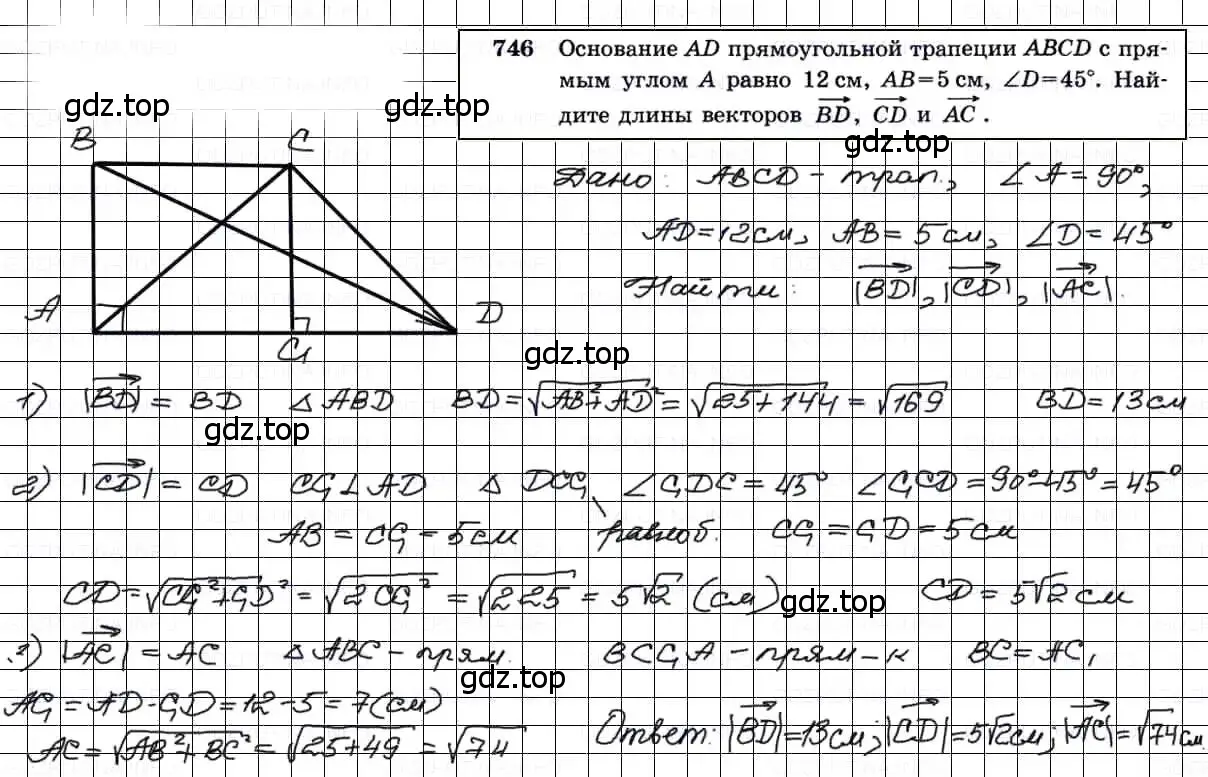 746 Основание AD прямоугольной трапеции ABCD с пря-
мым углом A равно 12 см, AB=5 см, ∠D=45°. Най-
дите длины векторов BD⃗, CD⃗ и AC⃗ .
gdz.top
gdz.top
B C
Дано: ABCD - трап., ∠A = 90°,
AD=12см, AB = 5 см, ∠D = 45°
Найти: |BD⃗|, |CD⃗|, |AC⃗|.
A D
C₁
gdz.top
1) |BD⃗| = BD △ ABD BD = √AB²+AD² = √25+144 = √169 BD = 13 см
gdz.top
2) |CD⃗| = CD CC₁ ⊥ AD △ DCC₁ ∠C₁DC = 45° ∠C₁CD = 90°-45° = 45°
AB = CC₁ = 5 см равноб. CC₁ = C₁D = 5 см
CD = √CC₁²+C₁D² = √2CC₁² = √2·25 = 5√2 (см) CD = 5√2 см
gdz.top
3) |AC⃗| = AC △ ABC - прям. BCC₁A - прям-к BC = AC₁
gdz.top
AC₁ = AD - C₁D = 12 - 5 = 7 (см)
AC = √AB²+BC² = √25+49 = √74
Ответ: |BD⃗|=13см; |CD⃗|=5√2см; |AC⃗|=√74см.